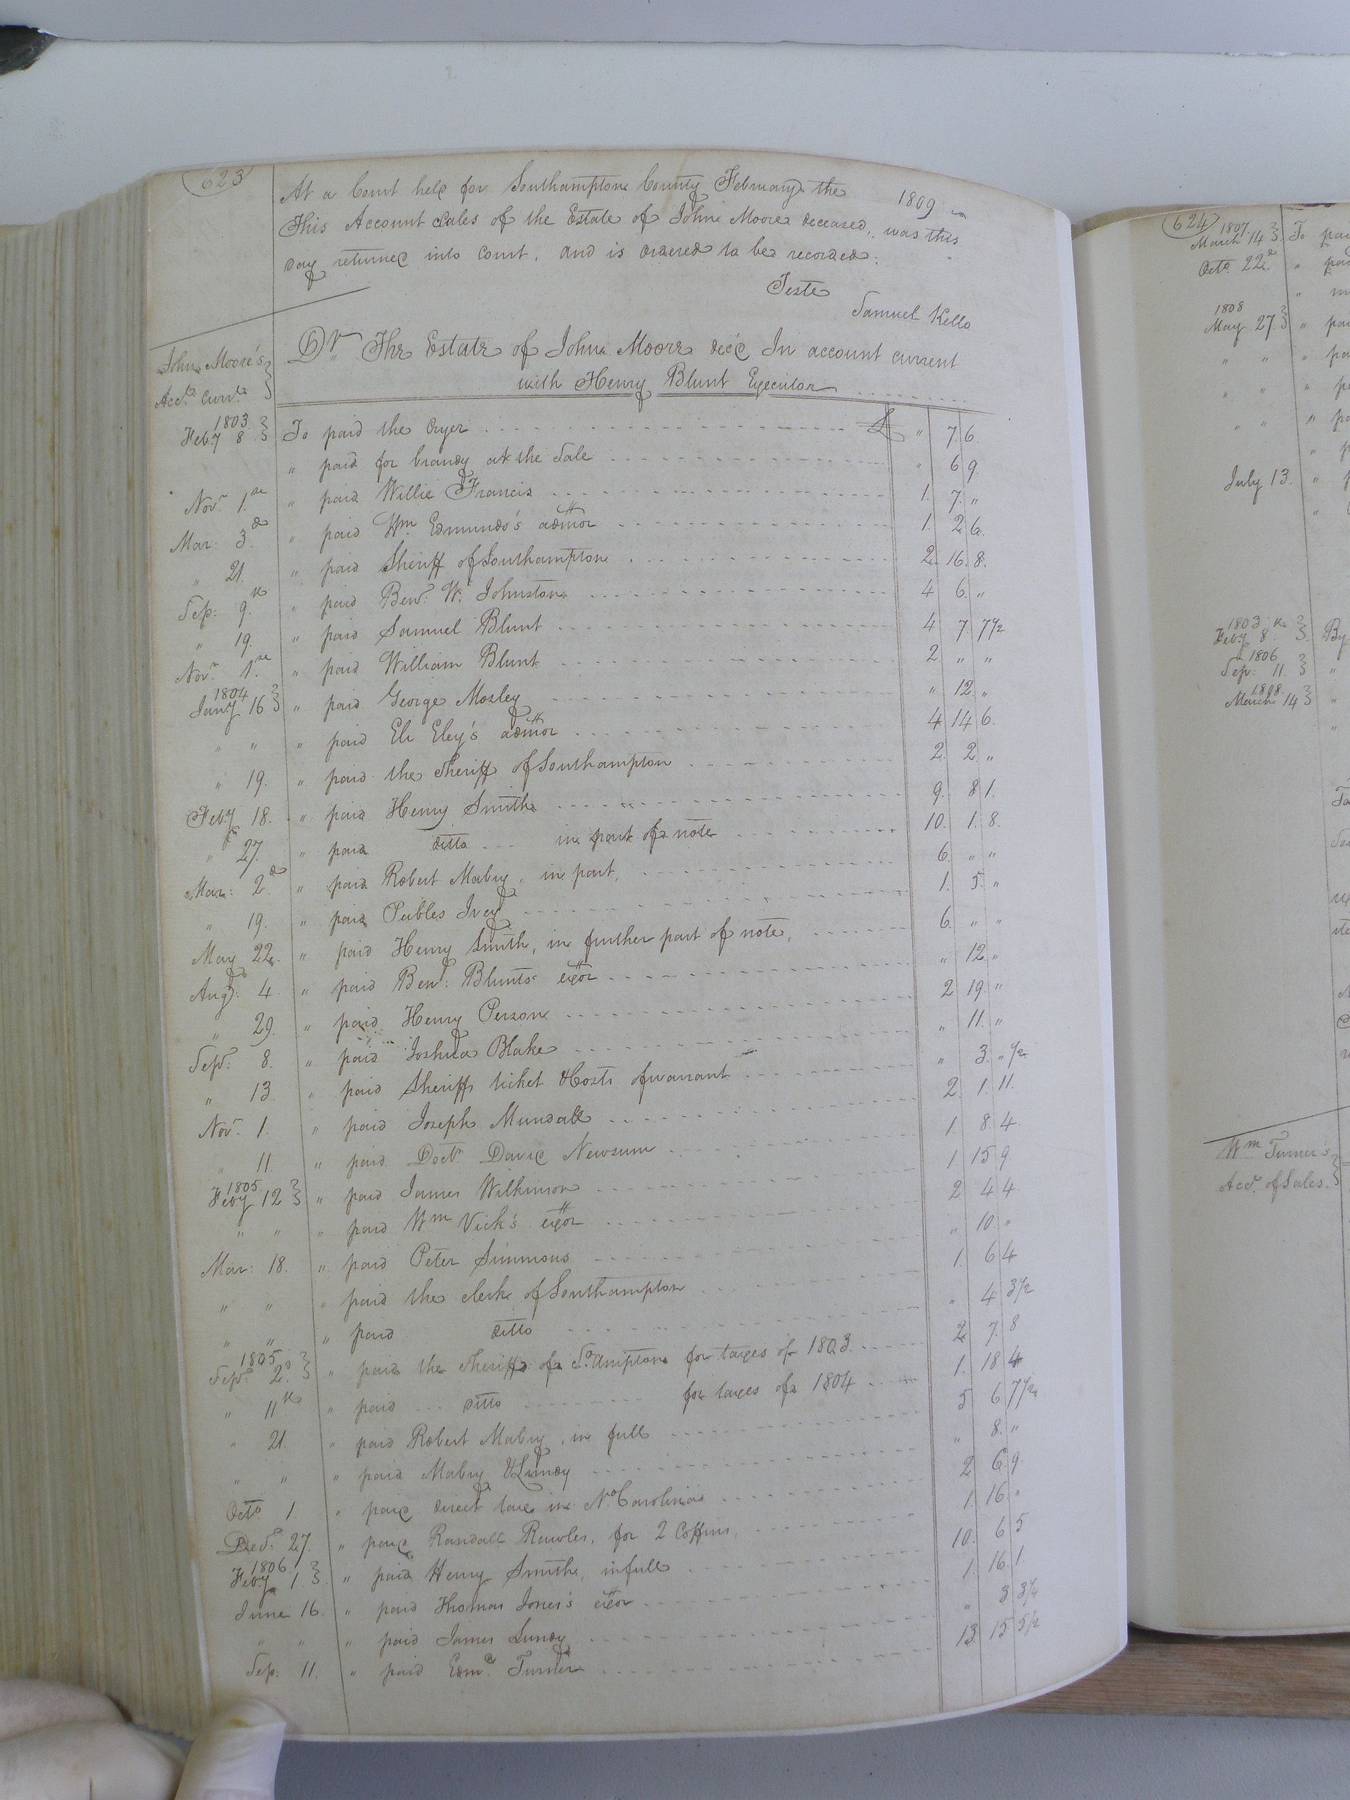 623
At a Court held for Southampton County February the 1809
This Account Sales of the Estate of John Moore deceased, was this
day returned into Court, and is ordered to be recorded.
Teste
Samuel Kello
John Moore's
Acct. Curr.t
Dr The Estate of John Moore dec'd In account current
with Henry Blunt Executor
1803 Feby 8 To paid the Cryer £ " 7 6
" paid for brandy at the Sale " 6 9
Nov. 1st " paid Willie Francis 1. 7. "
Mar: 3d " paid Wm. Edmunds's admor 1. 2 6.
" 21. " paid Sheriff of Southampton 2. 16. 8.
Sep: 9th " paid Benj. W. Johnston 4 6. "
" 19. " paid Samuel Blunt 4 7. 7½
Nov. 1st " paid William Blunt 2 " "
1804 Jany 16 " paid George Mozley " 12. "
" " " paid Eli Eley's admor 4 14 6.
" 19. " paid the Sheriff of Southampton 2. 2. "
Feby 18. " paid Henry Smith 9. 8 1.
" 27. " paid ditto in part of a note 10. 1. 8.
Mar: 2d " paid Robert Mabry, in part, 6. " "
" 19. " paid Peebles Ivey 1. 5. "
May 22. " paid Henry Smith, in further part of note, 6. " "
Augt. 4 " paid Benj: Blunts exor " 12. "
" 29. " paid Henry Person 2 19 "
Sept. 8. " paid Joshua Blake " 11. "
" 13. " paid Sheriffs ticket & Costs of warrant " 3. " ½
Nov. 1. " paid Joseph Mundall 2. 1. 11.
" 11 " paid Doctr David Newsum 1. 8. 4.
1805 Feby 12 " paid James Wilkinson 1 15 9
" " " paid Wm Vick's exor 2 4 4
Mar: 18. " paid Peter Simmons " 10 "
" " " paid the clerk of Southampton 1. 6 4
" " " paid ditto " 4 3½
1805 Sept. 2d " paid the Sheriff of So.ampton for taxes of 1803 2 7. 8
" 11th " paid ditto for taxes of 1804 1. 18 4
" 21. " paid Robert Mabry, in full 5 6 7½
" " " paid Mabry & Lundy " 8. "
Octo 1 " paid direct tax in No Carolina 2 6. 9.
Dec. 27. " paid Randall Rawles, for 2 Coffins, 1. 16. "
1806 Feby 1 " paid Henry Smith, in full 10. 6 5
June 16. " paid Thomas Jones's exor 1. 16 1.
" " " paid James Lundy " 3
Sep: 11. " paid Edmd. Turner 13. 15 5½
624
1807. March 14 To
Octo 22d "
1808 May 27. "
" " "
" " "
" " "
July 13. "
1803 Feby 8. By
1806 Sep: 11 "
1808. March 14 "
Wm Turner's
Acct. of Sales.